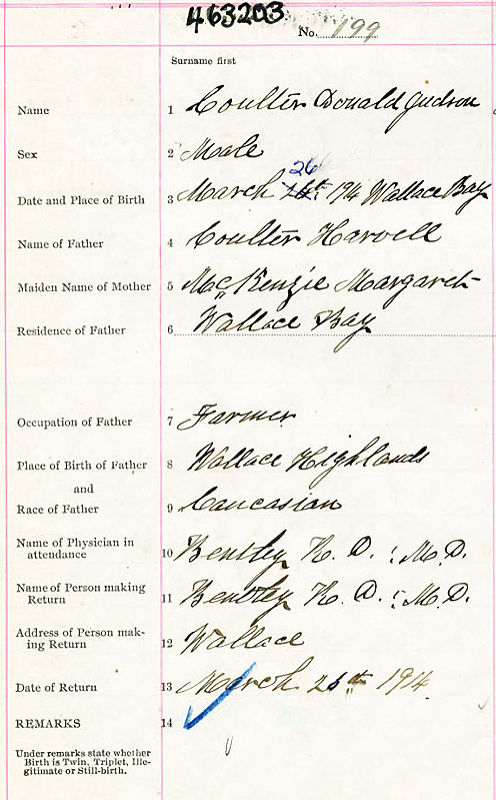 463203
No. 199
Surname first
Name 1 Coulter Donald Judson
Sex 2 Male
26
Date and Place of Birth 3 March th 1914 Wallace Bay
Name of Father 4 Coulter Harvell
Maiden Name of Mother 5 McKenzie Margaret
Residence of Father 6 Wallace Bay
Occupation of Father 7 Farmer
Place of Birth of Father 8 Wallace Highlands
and
Race of Father 9 Caucasian
Name of Physician in
attendance 10 Bentley R. D. : M.D.
Name of Person making
Return 11 Bentley R. D. : M.D.
Address of Person mak-
ing Return 12 Wallace
Date of Return 13 March th 1914
REMARKS 14
Under remarks state whether
Birth is Twin, Triplet, Ille-
gitimate or Still-birth.